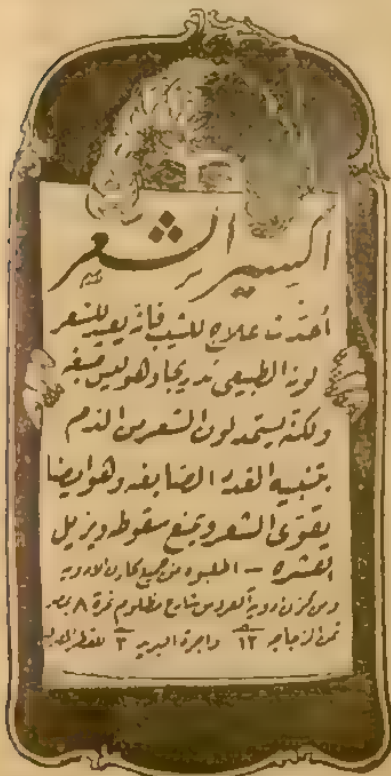 اكسير الشعر
أحدث علاج للشيب فانه يعيد للشعر
لونه الطبيعى تدريجا وهو ليس صبغه
ولكنه يستمد لون الشعر من الدم
بتنبيه الغدد الصابغه وهو ايضا
يقوى الشعر ويمنع سقوطه ويزيل
القشره – اطلبوه من جميع مخازن الادويه
ومن مخزن ادوية العروس شارع مظلوم نمرة ٨ بمصر
ثمن الزجاجه ١٢ واجرة البريد ٣